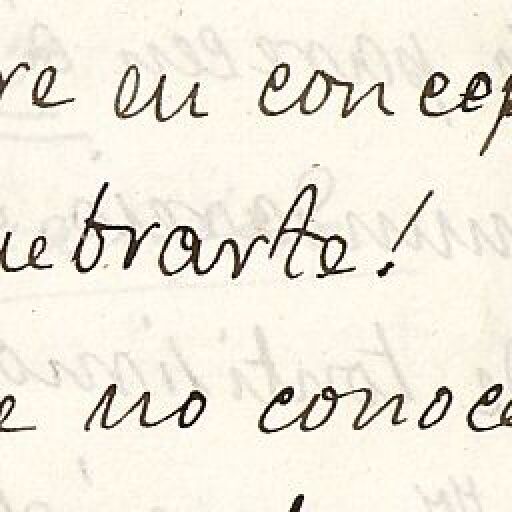 re en concep
uebrarte!
e no conoce